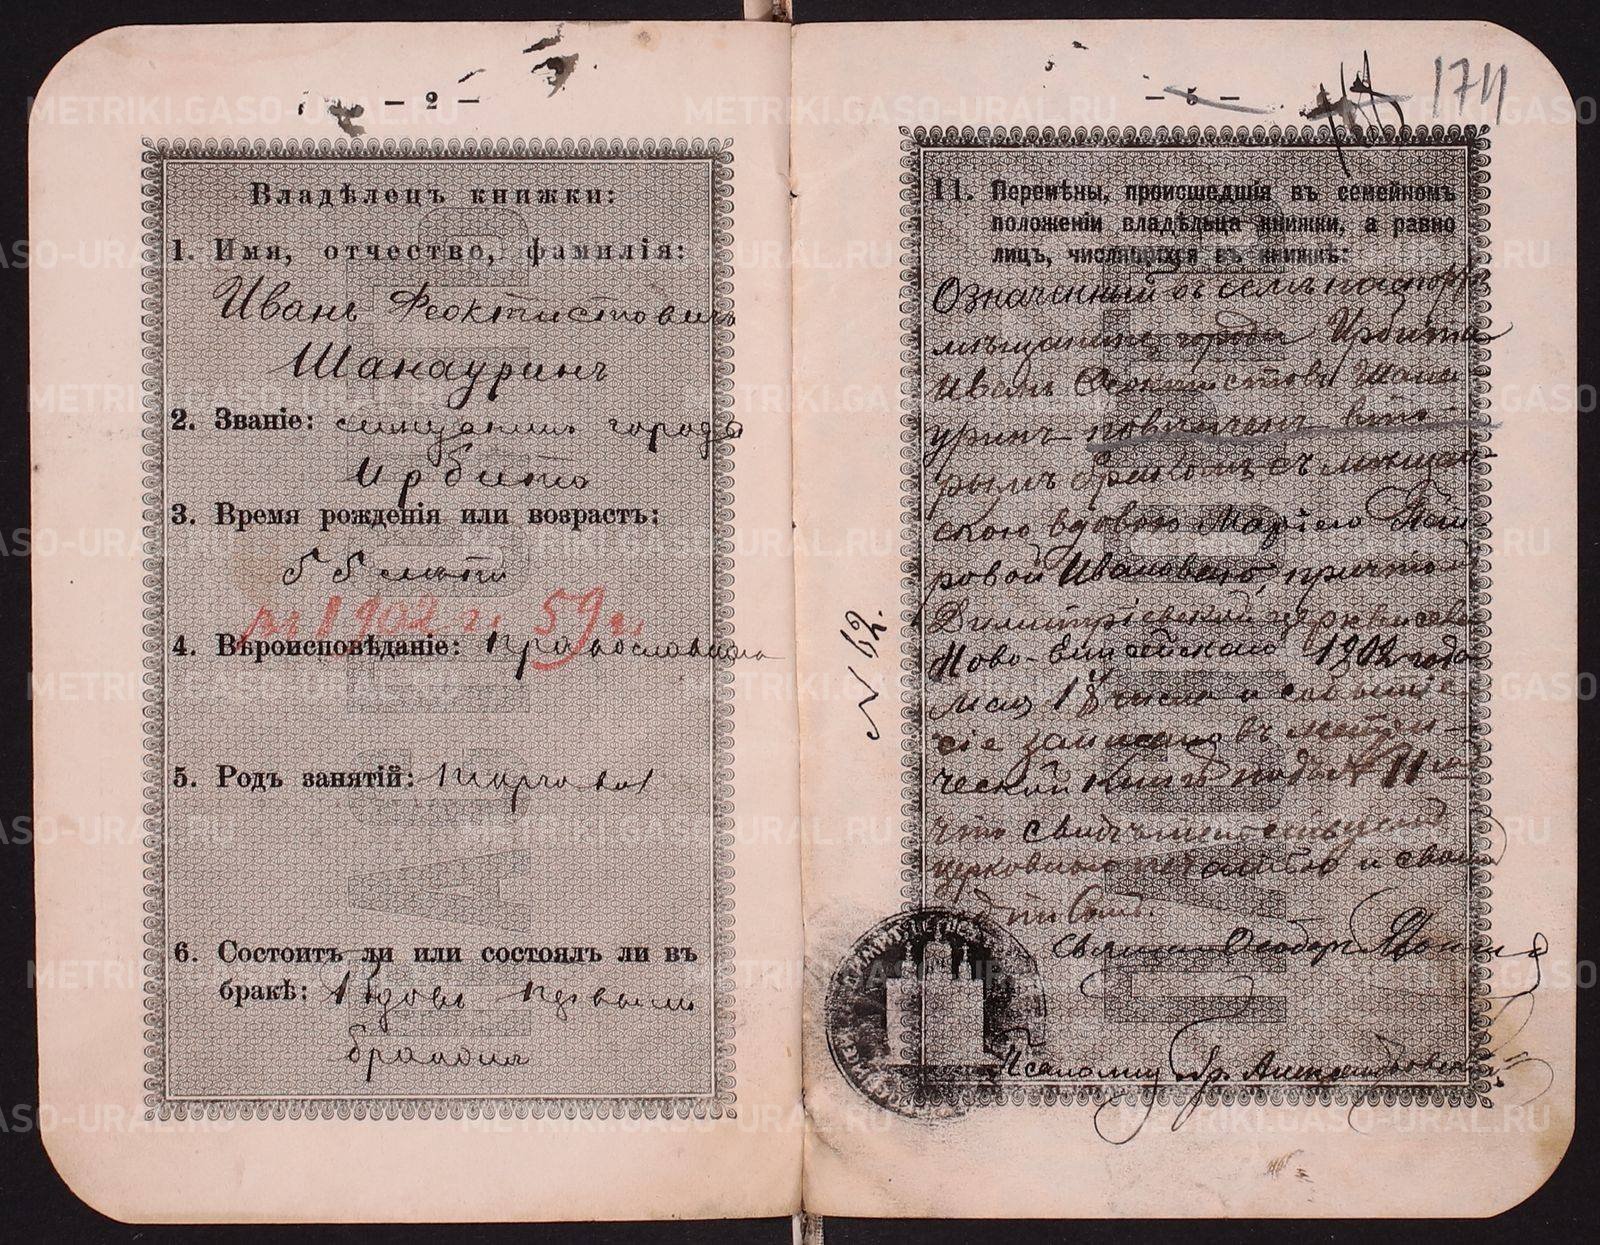 — 2 —
Владѣлецъ книжки:
1. Имя, отчество, фамилія:
Иванъ Феоктистовичъ
Шанауринъ
2. Званіе: мѣщанинъ города
Ирбита
3. Время рожденія или возрастъ:
55 лѣтъ
въ 1902 г. 59 л.
4. Вѣроисповѣданіе: православнаго
5. Родъ занятій: торговля
6. Состоитъ ли или состоялъ ли въ
бракѣ: Вдовъ первымъ
бракомъ
— 5 — 1711
11. Перемѣны, происшедшія въ семейномъ
положеніи владѣльца книжки, а равно
лицъ, числящихся въ книжкѣ:
Означенный въ семъ паспортѣ
мѣщанинъ города Ирбита
Иванъ Феоктистовъ Шана
уринъ повѣнчанъ вто-
рымъ бракомъ съ мѣщан
скою вдовою Маріею
ровой Ивановою, причтомъ
Димитріевской церкви села
Ново- 1902 года
мая 18 числа и событіе
сіе записано въ метри-
ческой книгѣ подъ № 11 мъ
что свидѣтельствую
церковною печатью и своимъ
подписомъ.
Священ. Ѳеодоръ
Псаломщ.
N 62.
METRIKI.GASO-URAL.RU